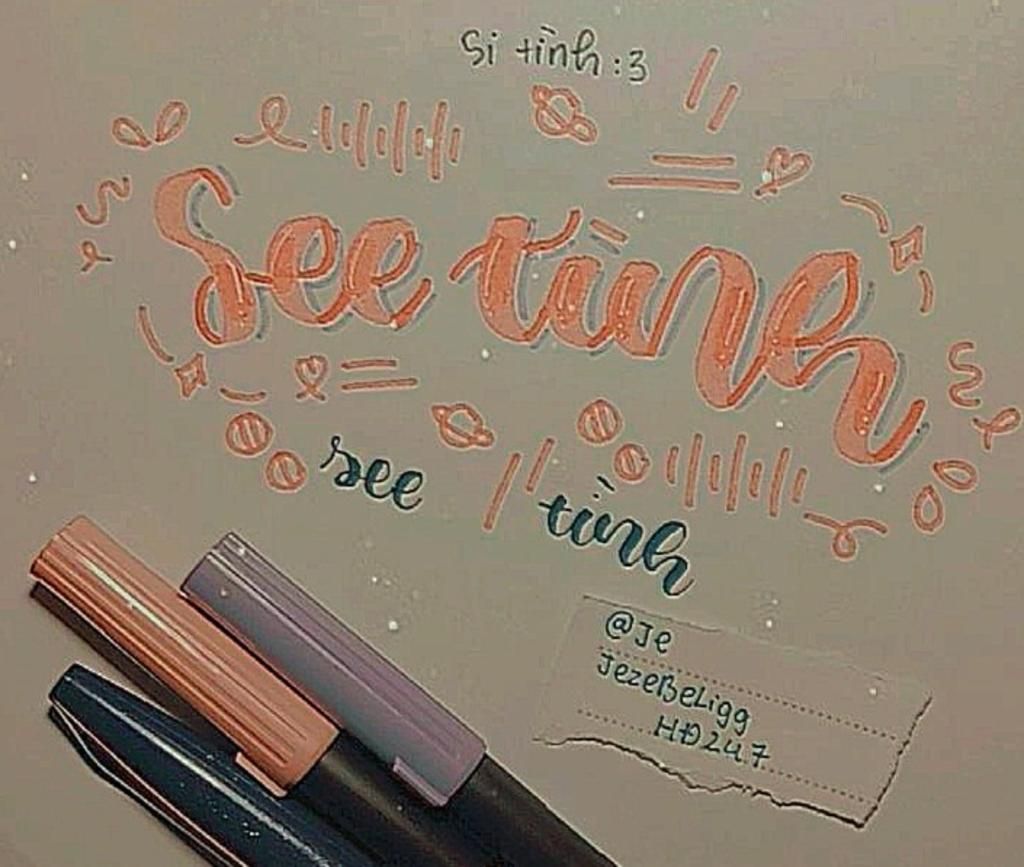 Si tình :3
See tình
see
tình
@Je
JezeBeLigg
HĐ247